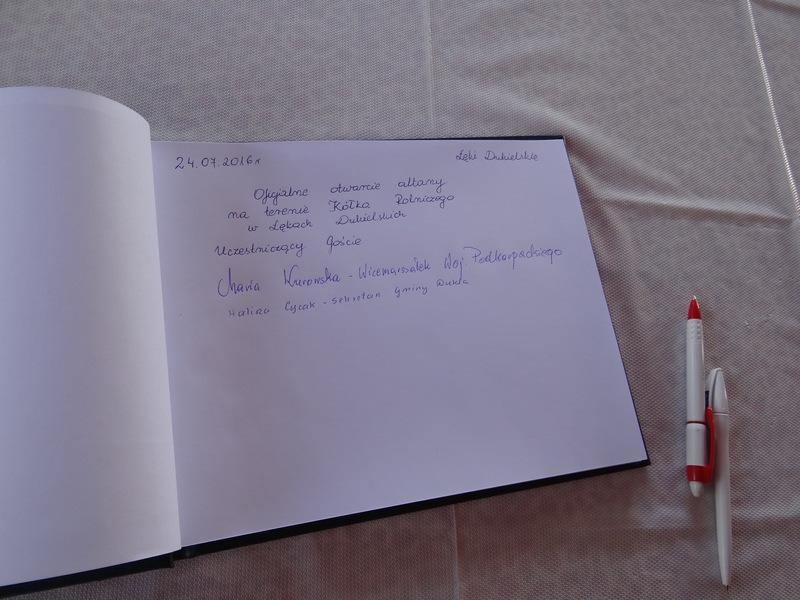 24.07.2016r
Łęki Dukielskie
Oficjalne otwarcie altany
na terenie Kółka Rolniczego
w Łękach Dukielskich
Uczestniczący goście
Maria Kurowska - Wicemarszałek Woj Podkarpackiego
Halina Cycak - Sekretarz Gminy Dukla